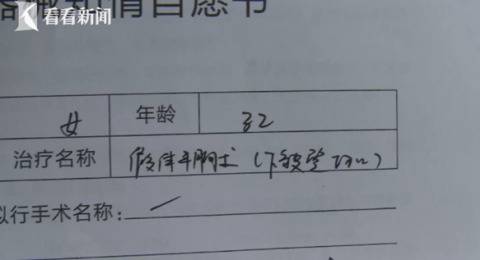 看看新闻
知情自愿书
女 年龄 32
治疗名称 假体丰胸术（下皱襞切口）
拟行手术名称：